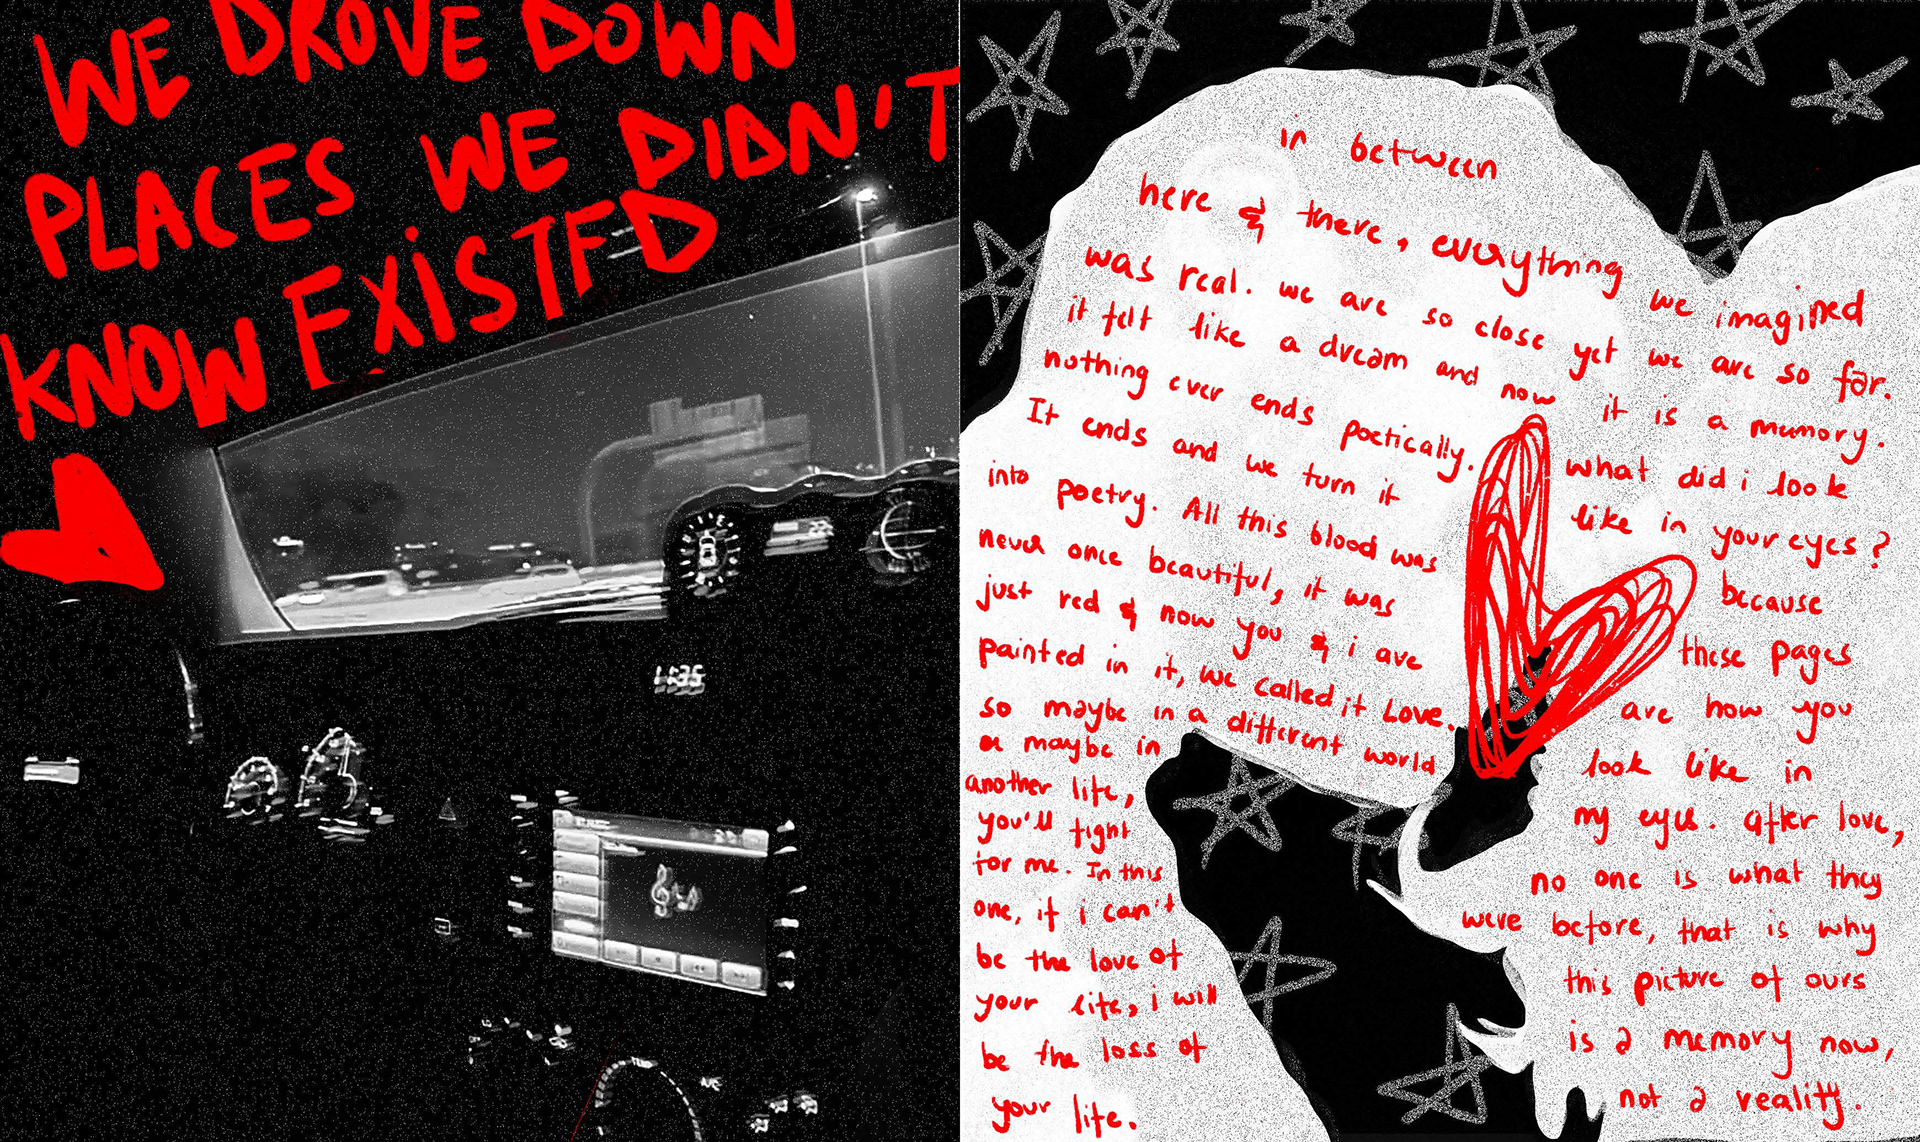 WE DROVE DOWN
PLACES WE DIDN'T
KNOW EXISTED
1:35
in between
here & there, everything we imagined
was real. we are so close yet we are so far.
it felt like a dream and now it is a memory.
nothing ever ends poetically.
It ends and we turn it
into poetry. All this blood was
never once beautiful, it was
just red & now you & i are
painted in it, we called it Love.
so maybe in a different world
or maybe in
another life,
you'll fight
for me. In this
one, if i can't
be the love of
your life, i will
be the loss of
your life.
what did i look
like in your eyes?
because
these pages
are how you
look like in
my eyes. after love,
no one is what they
were before, that is why
this picture of ours
is a memory now,
not a reality.